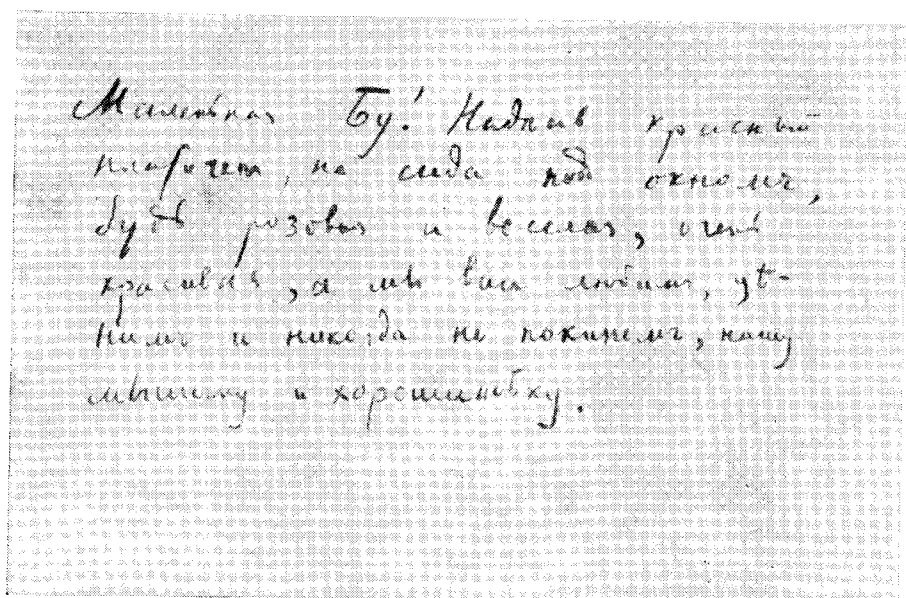 Маленькая Бу! Надѣвъ красный
платочекъ, не сиди под окномъ,
будь розовая и веселая, очень
красивая, а мы васъ любимъ, цѣ-
нимъ и никогда не покинемъ, нашу
мышишку и хорошинькую.